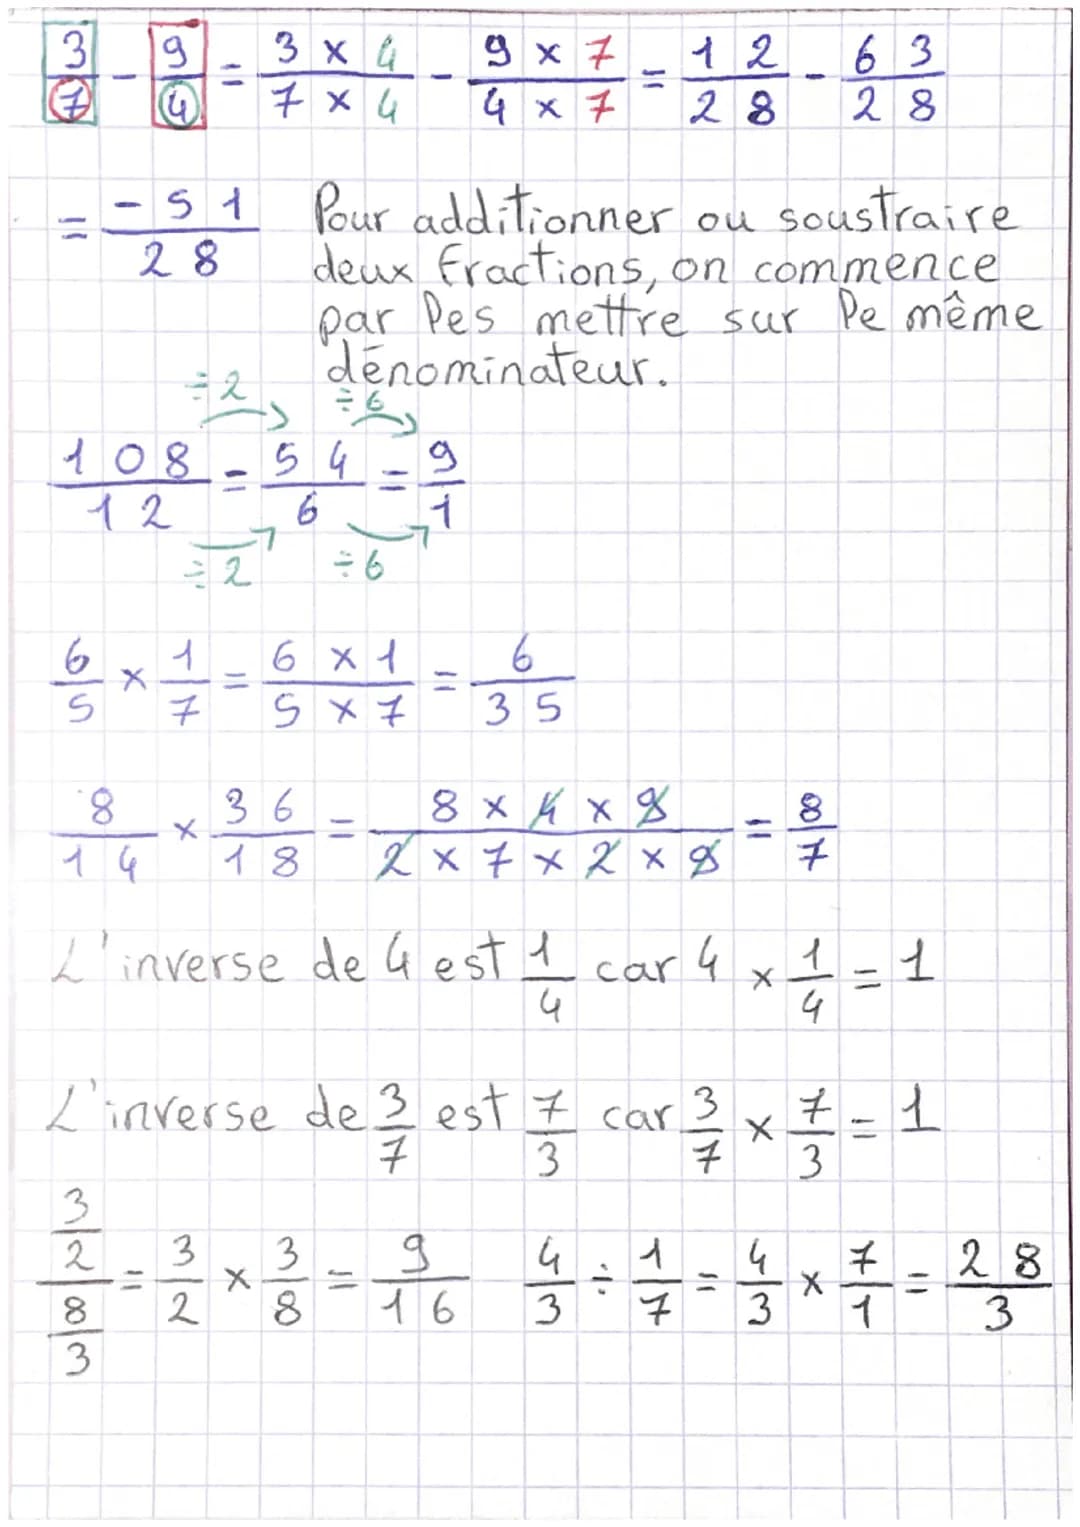 3/7 - 9/4 = (3 × 4)/(7 × 4) - (9 × 7)/(4 × 7) = 12/28 - 63/28
= -51/28
Pour additionner ou soustraire
deux fractions, on commence
par les mettre sur le même
dénominateur.
÷2 ÷6
108/12 = 54/6 = 9/1
÷2 ÷6
6/5 × 1/7 = (6 × 1)/(5 × 7) = 6/35
8/14 × 36/18 = (8 × 4 × 9)/(2 × 7 × 2 × 9) = 8/7
L'inverse de 4 est 1/4 car 4 × 1/4 = 1
L'inverse de 3/7 est 7/3 car 3/7 × 7/3 = 1
(3/2)/(8/3) = 3/2 × 3/8 = 9/16
4/3 ÷ 1/7 = 4/3 × 7/1 = 28/3